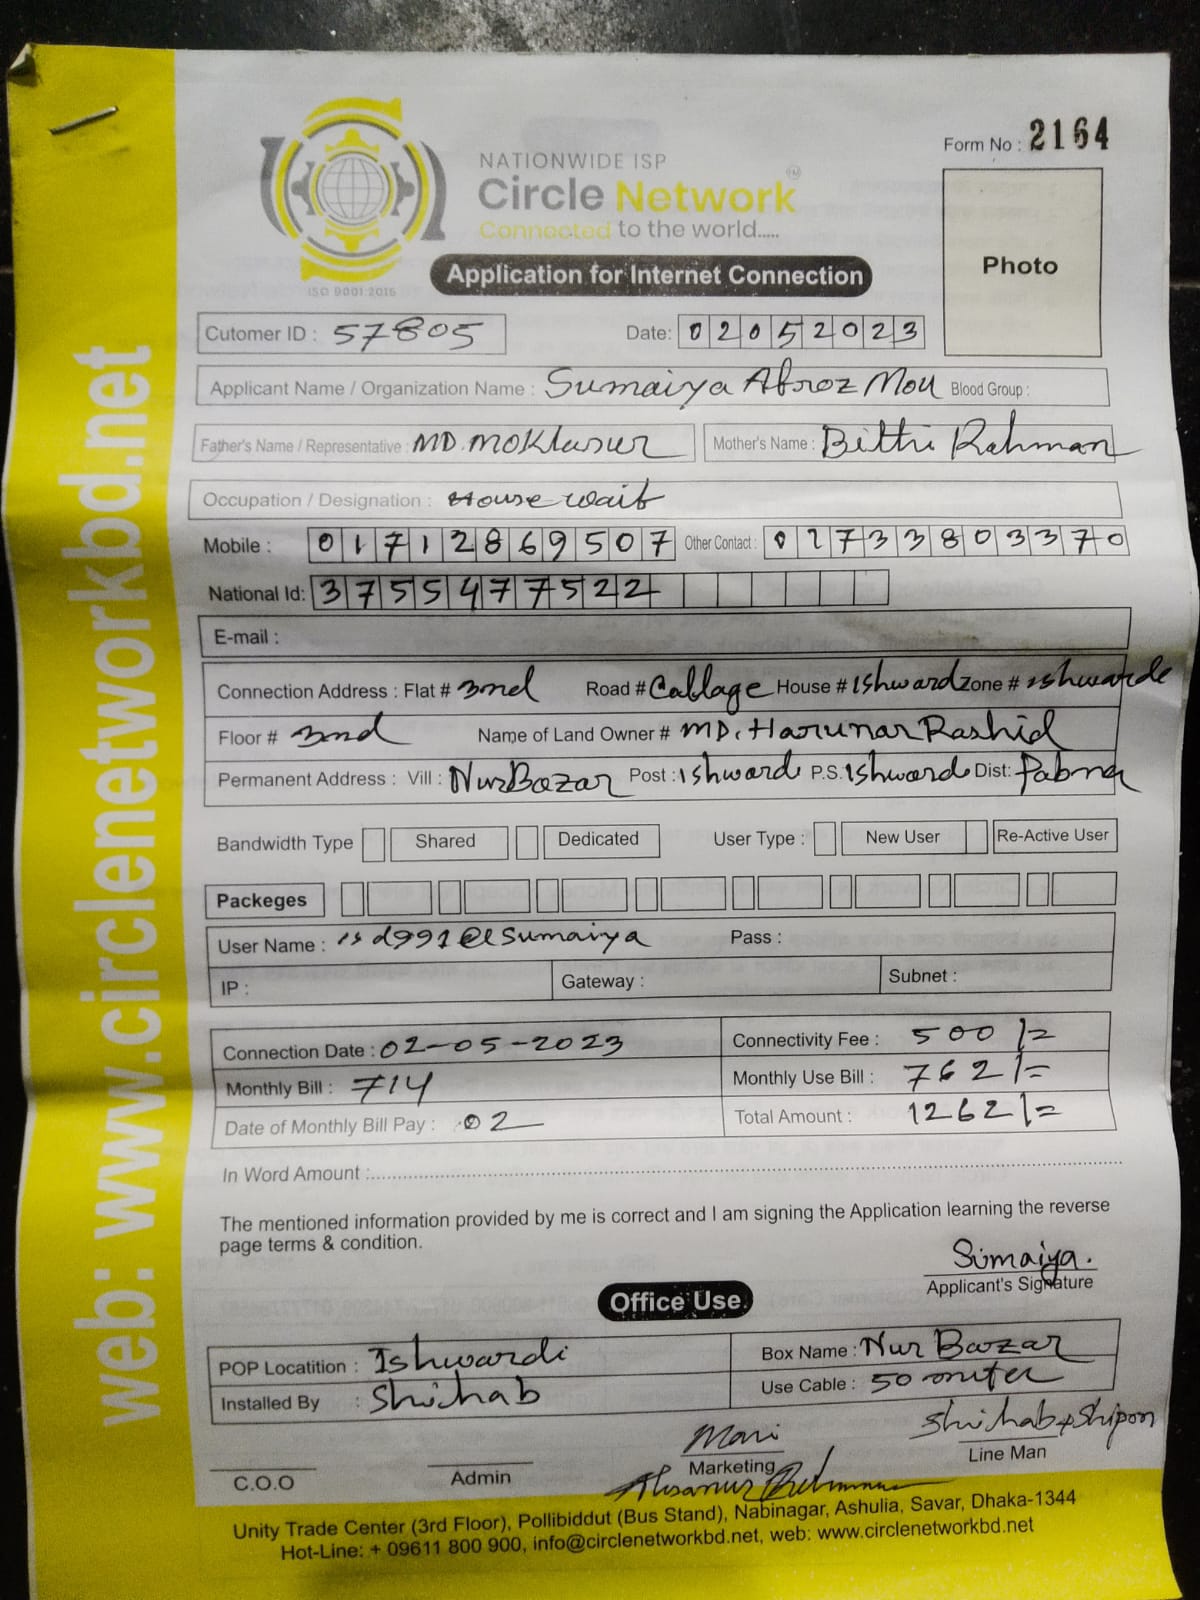 web: www.circlenetworkbd.net
Form No : 2164
NATIONWIDE ISP
Circle Network TM
Connected to the world.....
ISO 9001:2015
Application for Internet Connection
Photo
Cutomer ID : 57805 Date: 02052023
Applicant Name / Organization Name : Sumaiya Afroz Mou Blood Group :
Father's Name / Representative : MD. Mokla Mother's Name : Bithi Rahman
Occupation / Designation : House waif
Mobile : 01712869507 Other Contact : 01733803370
National Id: 3755477522
E-mail :
Connection Address : Flat # 3nd Road # Collage House # Ishward Zone # Ishwarde
Floor # 3nd Name of Land Owner # MD. Harunar Rashid
Permanent Address : Vill : Nur Bazar Post : Ishwardi P.S. Ishwardi Dist: Pabna
Bandwidth Type Shared Dedicated User Type : New User Re-Active User
Packeges
User Name : isd991@esumaiya Pass :
IP : Gateway : Subnet :
Connection Date : 02-05-2023 Connectivity Fee : 500/=
Monthly Bill : 714 Monthly Use Bill : 762/=
Date of Monthly Bill Pay : 02 Total Amount : 1262/=
In Word Amount :
The mentioned information provided by me is correct and I am signing the Application learning the reverse
page terms & condition.
Sumaiya.
Applicant's Signature
Office Use
POP Locatition : Ishwardi Box Name : Nur Bazar
Installed By : Shihab Use Cable : 50 miter
Shihab + Shipon
C.O.O Admin Marketing Line Man
Unity Trade Center (3rd Floor), Pollibiddut (Bus Stand), Nabinagar, Ashulia, Savar, Dhaka-1344
Hot-Line: + 09611 800 900, info@circlenetworkbd.net, web: www.circlenetworkbd.net